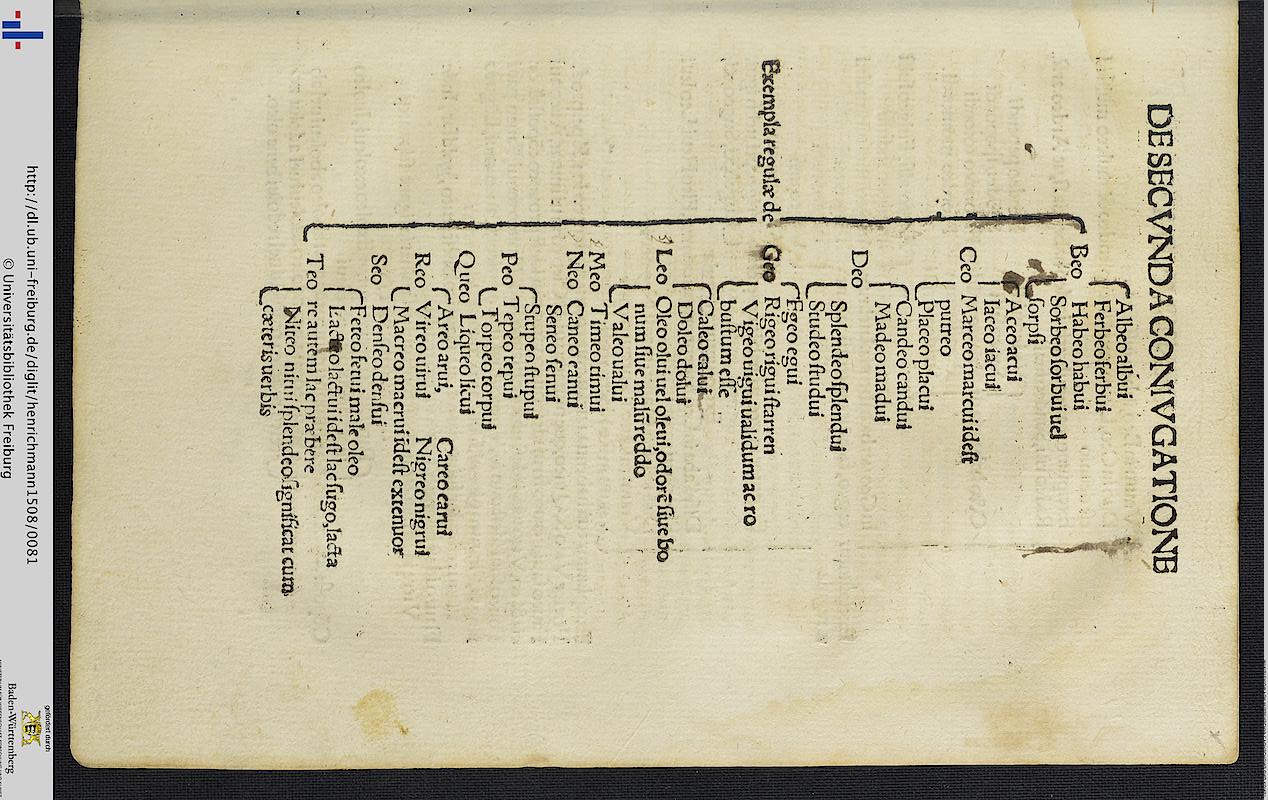 DE SECVNDA CONIVGATIONE
Exempla regulæ de
Beo
Albeo albui
Ferbeo ferbui
Habeo habui
Sorbeo sorbui uel
sorpsi
Ceo
Aceo acui
Iaceo iacui
Marceo marcui idest
putreo
Placeo placui
Deo
Candeo candui
Madeo madui
Splendeo splendui
Studeo studui
Geo
Egeo egui
Rigeo rigui starren
Vigeo uigui ualidum ac ro
bustum esse
Leo
Caleo calui
Doleo dolui
Oleo olui uel oleui, odorē siue bo
num siue malū reddo
Valeo ualui
Meo Timeo timui
Neo Caneo canui
Seneo senui
Peo
Stupeo stupui
Tepeo tepui
Torpeo torpui
Queo Liqueo licui
Reo
Areo arui, Careo carui
Vireo uirui Nigreo nigrui
Macreo macrui idest extenuor
Seo Denseo densui
Teo
Feteo fetui male oleo
Lacteo lactui idest lac sugo, lacta
re autem lac præbere
Niteo nitui splendeo, significat cum
cæteris uerbis
http://dl.ub.uni-freiburg.de/diglit/henrichmann1508/0081
© Universitätsbibliothek Freiburg
gefördert durch
Baden-Württemberg